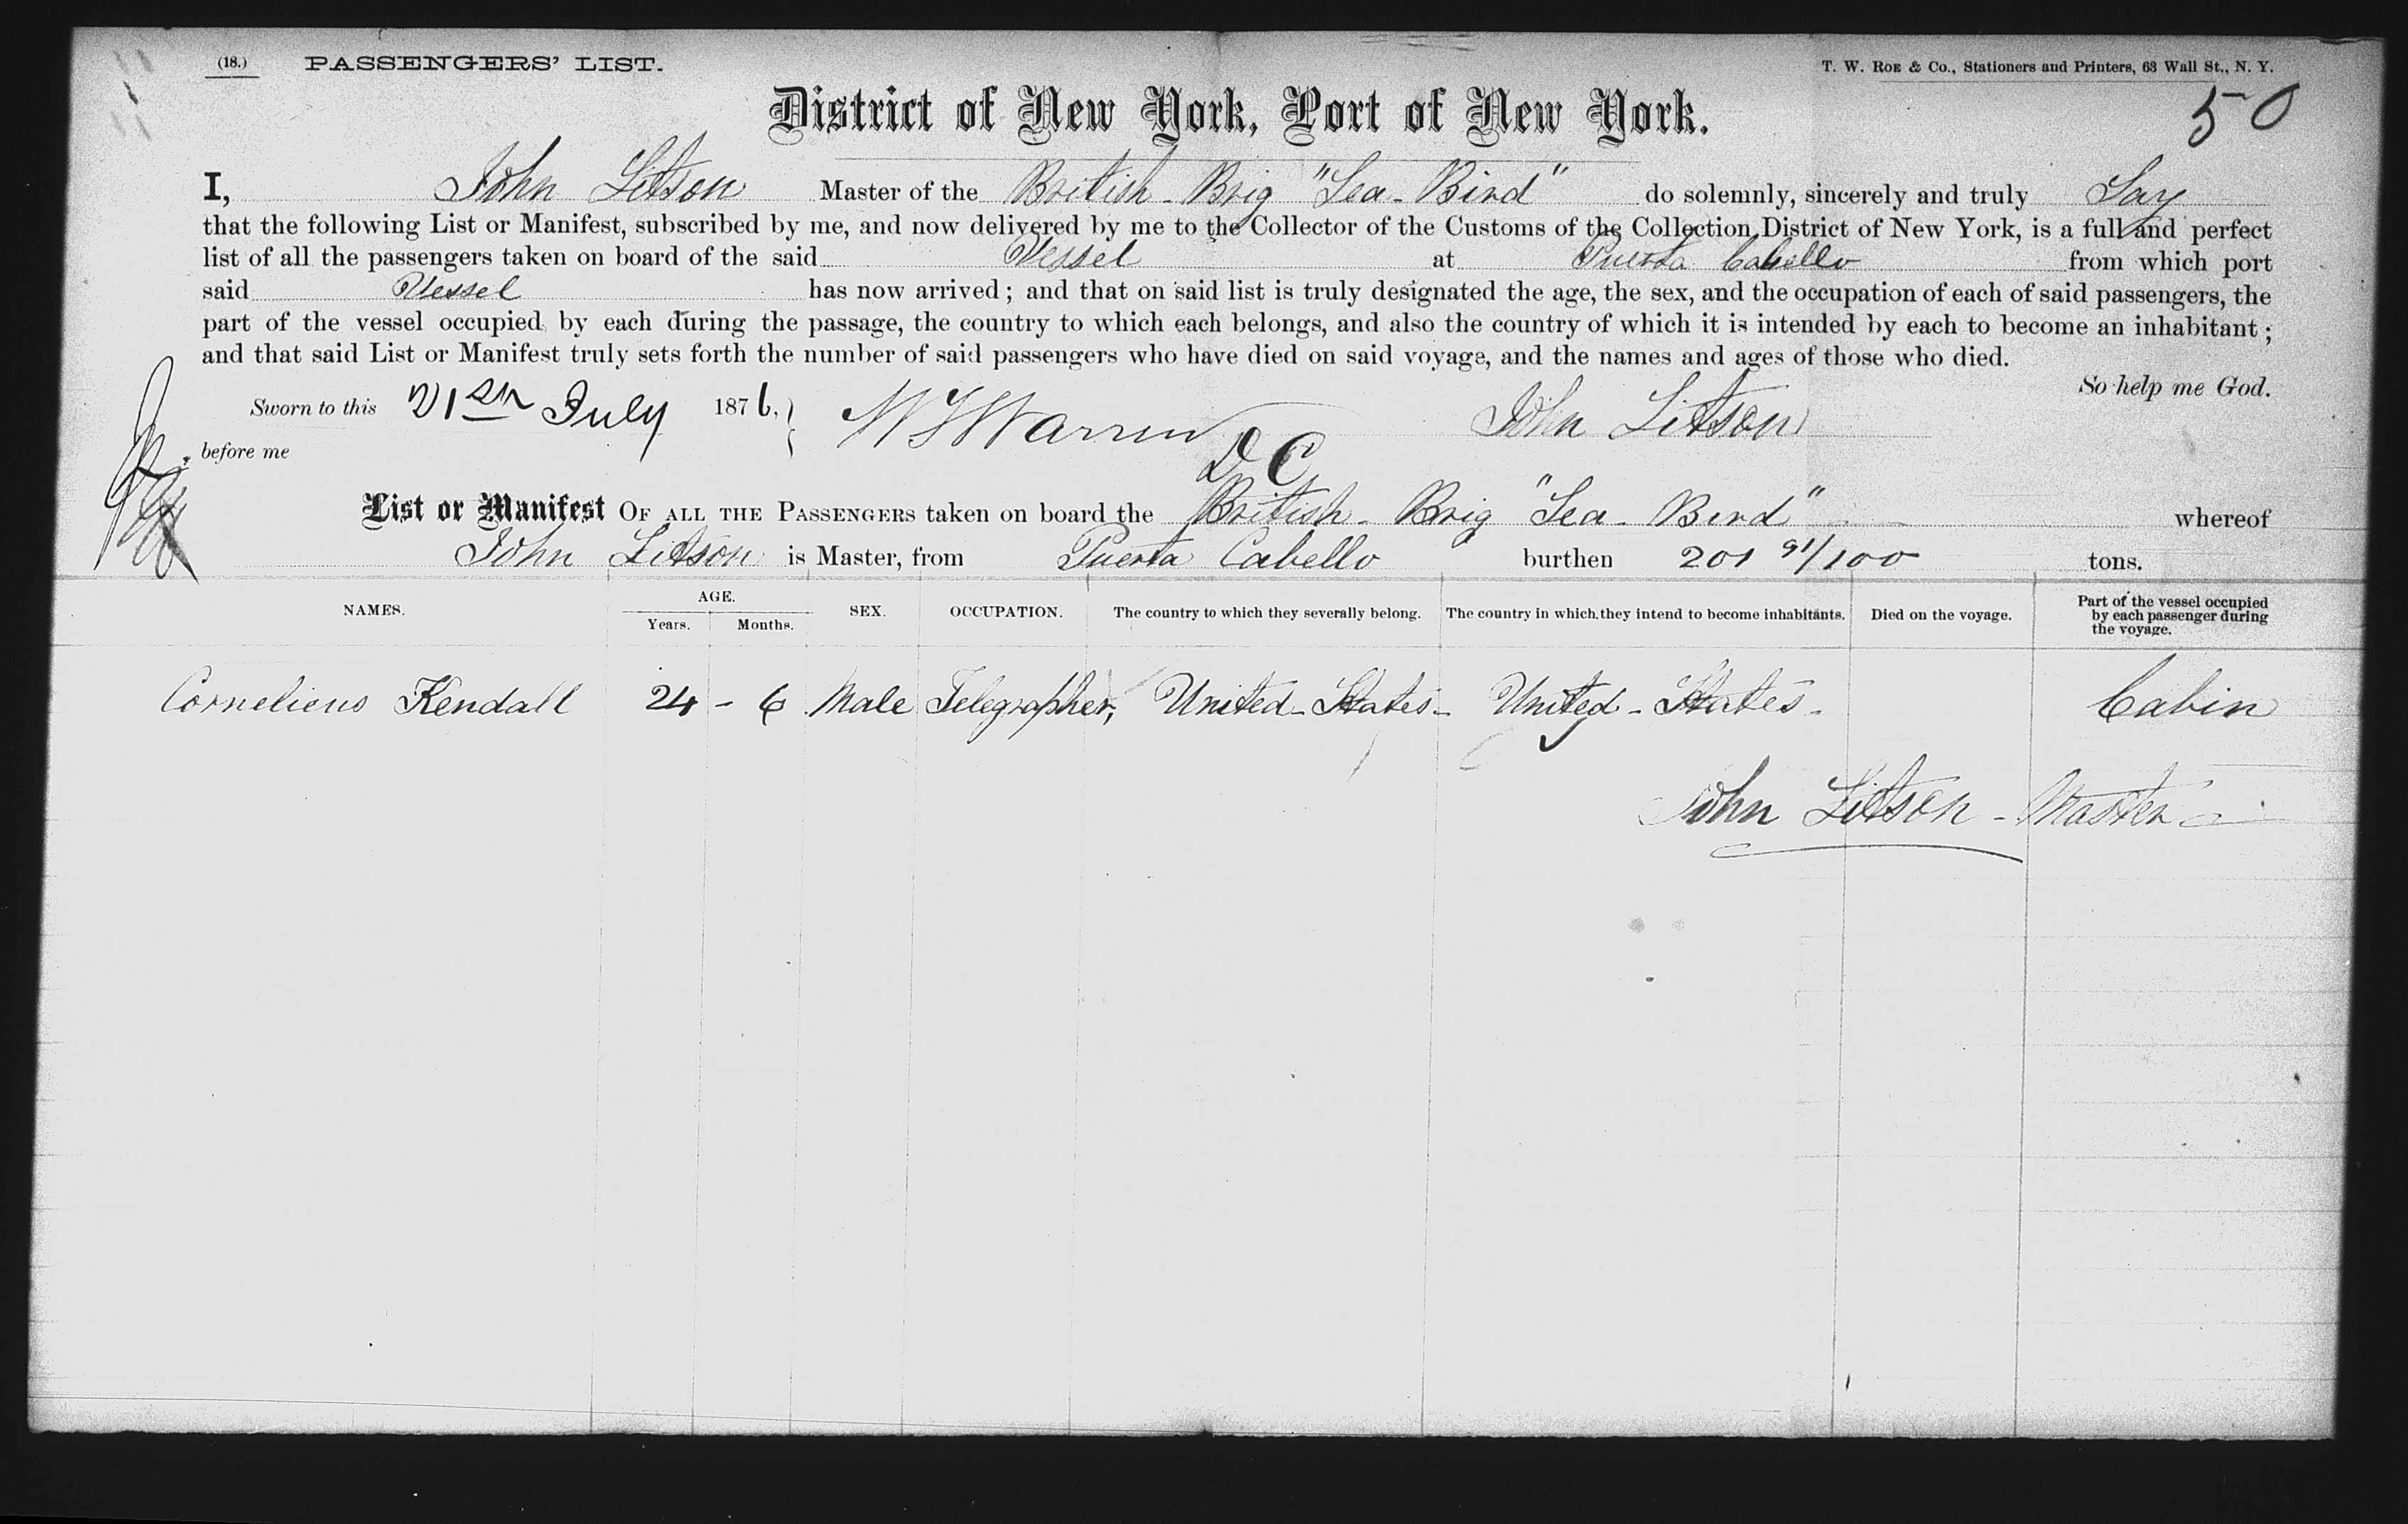 (18.) PASSENGERS' LIST. T. W. ROE & Co., Stationers and Printers, 63 Wall St., N. Y.
50
District of New York, Port of New York.
I, John Litson Master of the British - Brig "Sea - Bird" do solemnly, sincerely and truly Say
that the following List or Manifest, subscribed by me, and now delivered by me to the Collector of the Customs of the Collection District of New York, is a full and perfect
list of all the passengers taken on board of the said Vessel at Puerta Cabello from which port
said Vessel has now arrived; and that on said list is truly designated the age, the sex, and the occupation of each of said passengers, the
part of the vessel occupied by each during the passage, the country to which each belongs, and also the country of which it is intended by each to become an inhabitant;
and that said List or Manifest truly sets forth the number of said passengers who have died on said voyage, and the names and ages of those who died.
So help me God.
Sworn to this 21st July 1876, Warren John Litson
before me D C
List or Manifest OF ALL THE PASSENGERS taken on board the British - Brig "Sea - Bird" whereof
John Litson is Master, from Puerta Cabello burthen 201 91/100 tons.
NAMES. AGE. Years. Months. SEX. OCCUPATION. The country to which they severally belong. The country in which they intend to become inhabitants. Died on the voyage. Part of the vessel occupied by each passenger during the voyage.
Cornelieus Kendall 24 - 6 Male Telegrapher, United - States - United - States - Cabin
John Litson - Master